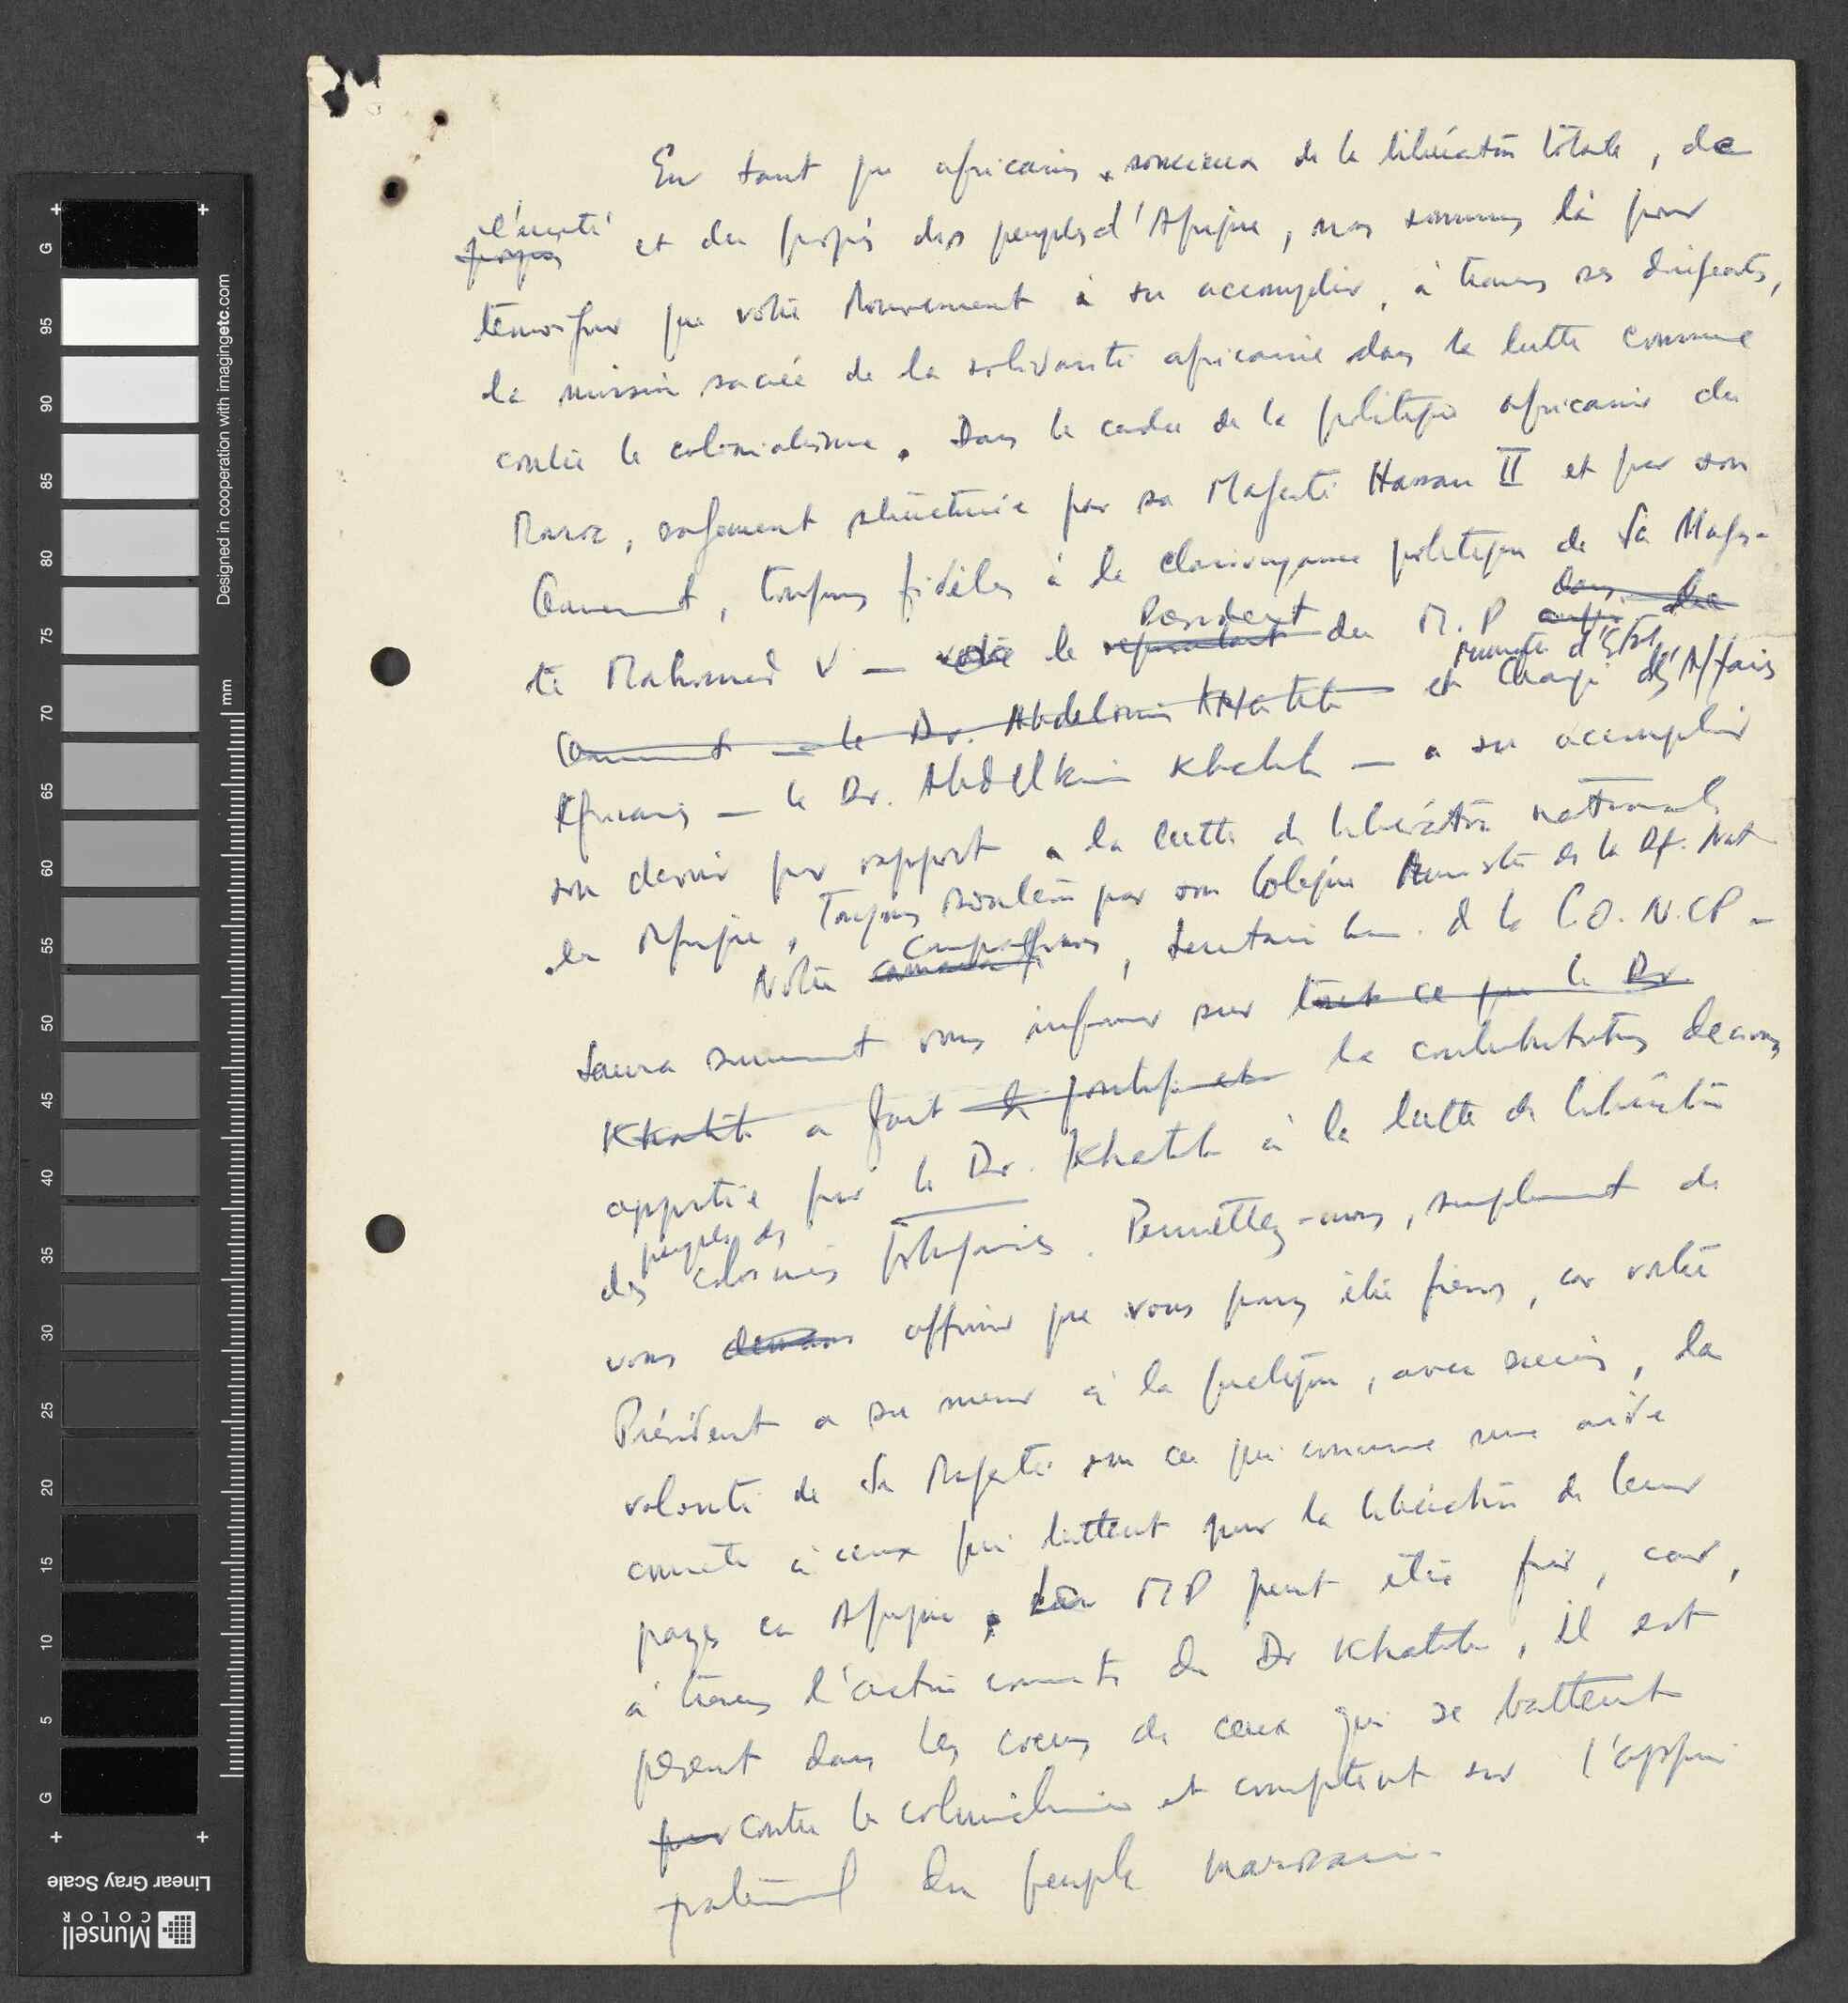 En tant que africains, soucieux de la libération totale, de
progrès l'unité et du progrès des peuples d'Afrique, nous sommes là pour
témoigner que votre Mouvement a su accomplir, à travers ses dirigeants,
la mission sacrée de la solidarité africaine dans la lutte commune
contre le colonialisme. Dans le cadre de la politique africaine du
Maroc, sagement structurée par sa Majesté Hassan II et par son
Gouvernement, toujours fidèles à la clairvoyance politique de Sa Majes-
té Mohamed V — votre le représentant Président du M.P dans le
Ministre d'Etat
Gouvernement — le Dr. Abdelkrim Khatib — et Chargé des Affaires
Africaines — le Dr. Abdelkrim Khatib — a su accomplir
son devoir par rapport a la lutte de libération nationale
en Afrique, toujours soutenu par son Collègue Ministre de la Df. Nat
Notre camarade compagnon, Secrétaire Gen. de la C.O.N.C.P —
saura surement vous informer sur tout ce que le Dr
Khatib a fait de positif et la contribution
apportée par le Dr. Khatib à la lutte de libération
des peuples des colonies portugaises. Permettez-nous, simplement de
vous affirmer que vous pouvez être fiers, car votre
Président a su mener à la pratique, avec succès, la
volonté de Sa Majesté en ce qui concerne une aide
concrète à ceux qui luttent pour la libération de leur
pays en Afrique. Le MP peut être fier, car,
à travers l'action concrète du Dr Khatib, il est
présent dans les coeurs de ceux qui se battent
pour contre le colonialisme et comptent sur l'appui
fraternel du peuple marocain.